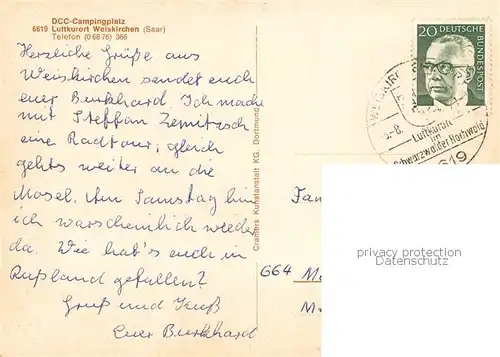 DCC-Campingplatz
6619 Luftkurort Weiskirchen (Saar)
Telefon (0 68 76) 366
Herzliche Grüße aus
Weiskirchen sendet euch
euer Burkhard. Ich mache
mit Steffan
eine Radtour; gleich
gehts weiter an die
Mosel. Am Samstag bin
ich warscheinlich wieder
da. Wie hat's euch in
Rußland gefallen?
Gruß und Kuß
Euer Burkhard
Cramers Kunstanstalt KG. Dortmund
20 DEUTSCHE
BUNDESPOST
Luftkurort
im
Schwarzwälder Hochwald
6619
Fam
664 Me
M
privacy protection
for Ansichtskarten-Lexikon